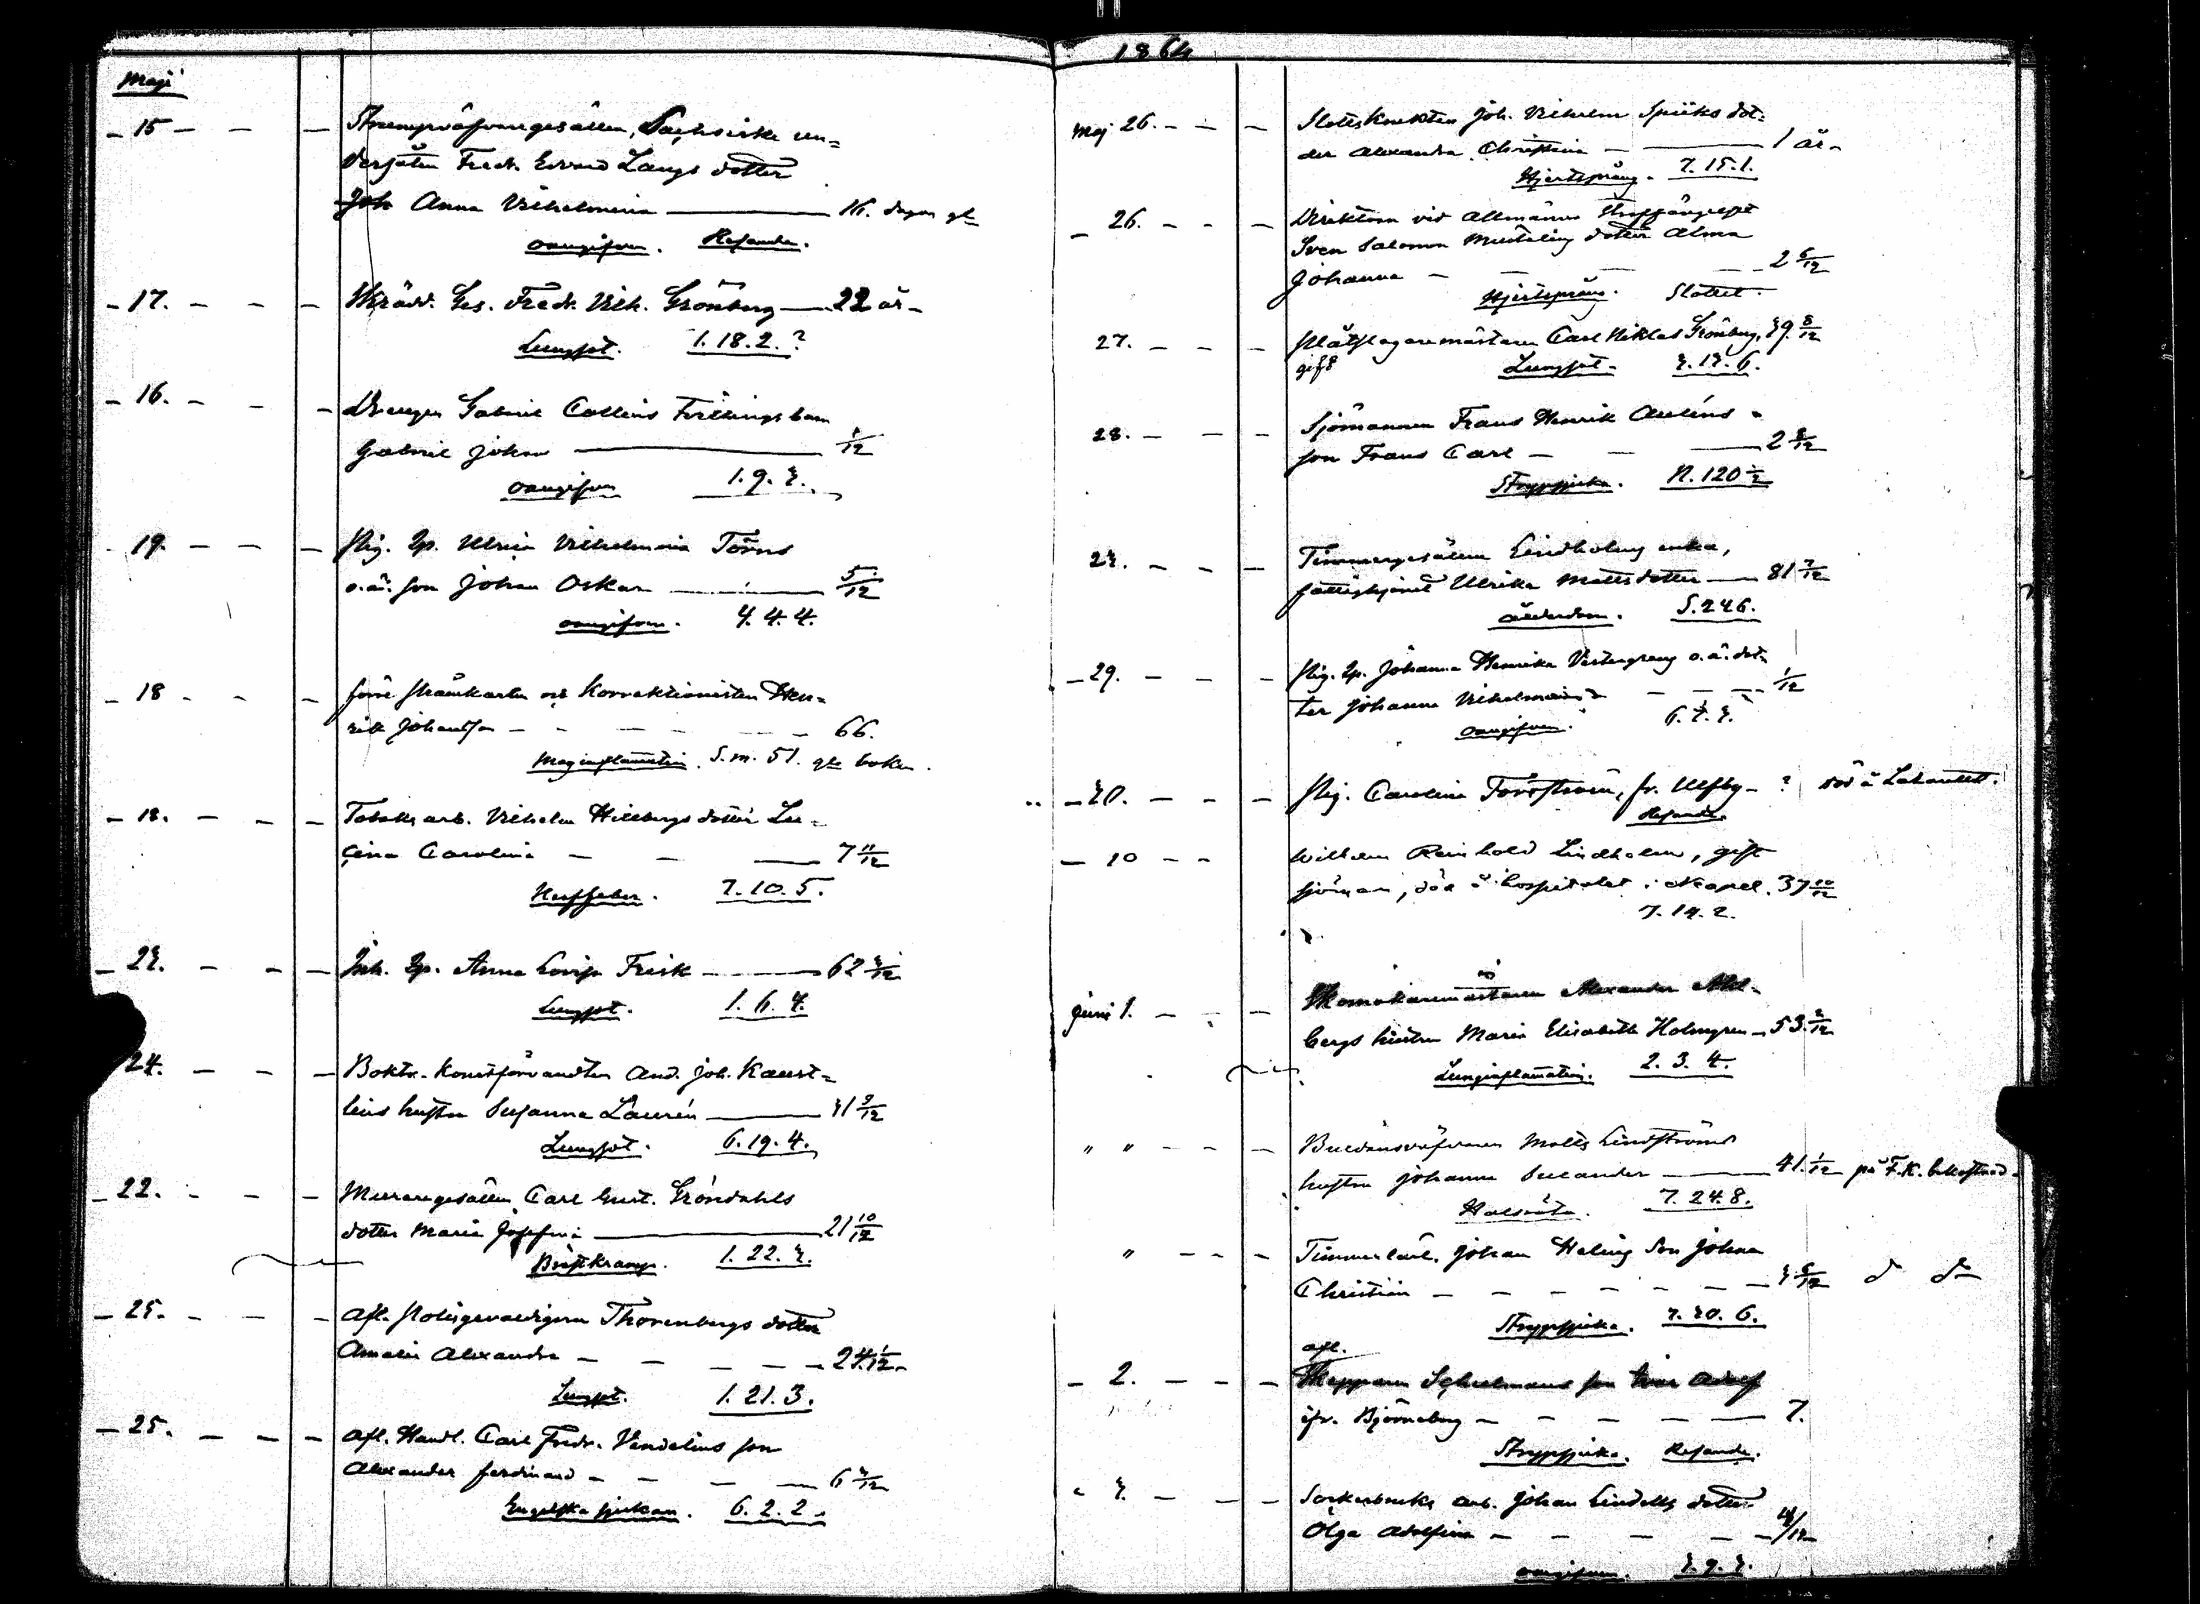 1864
Maji
15 — Strumpväfvaregesällen, Sachsiske un=
dersåten Fredr. Edvard Langs dotter
Joh Anna Vilhelmina — 16. dagar gl
oangifven. Resande.
17. — Skrädd. Ges. Fredr. Vilh. Grönberg — 22 år
Lungsot. 1.18.2.?
16. — Drengen Gabriel Collins Tvillingsbarn
Gabriel Johan — 1/12
oangifven 1.9.3.
19. — Pig. Ip. Ulrica Vilhelmina Törns
o.ä. son Johan Oskar — 5/12
oangifven. 4.4.4.
18 — förre Korrektionisten Hen=
rik Johansson — 66.
Maginflammation. S.m. 51. gla boken.
18. — Tobaks arb. Vilhelm Hillbergs dotter Lu=
cina Carolina — 7 11/12
Nerffeber. 7.10.5.
23. — Inh. Ip. Anna Lovisa Frisk — 62 3/12
Lungsot. 1.6.4.
24. — Boktr. Konstförvandten And. Joh. Kaust=
lins hustru Susanna Laurén — 31 9/12
Lungsot. 6.19.4.
22. — Muraregesällen Carl Gust. Gröndahls
dotter Maria Josefina — 21 10/12
Bröstkramp. 1.22.3.
25. — Afl. Thorenbergs dotter
Amalia Alexandra — 24 1/12
Lungsot. 1.21.3.
25. — Afl. Handl. Carl Fredr. Vendelins son
Alexander Ferdinand — 6 3/12
Engelska sjukan. 6.2.2.
Maj 26. — Slottsknekten Joh. Vilhelm Spiiks dot=
der Alexandra Christina — 1 år
Hjertsprång. 7.15.1.
26. — Direktorn vid Allmänna
Sven Salomon dotter Alma
Johanna — 2 6/12
Hjertsprång. Slottet.
27. — Plåtslagaremästaren Carl Niklas Grönberg, 39 8/12
gift Lungsot. 3.13.6.
28. — Sjömannen Frans Henrik Auléns
son Frans Carl — 2 8/12
Strypsjuka. N.120 1/2
23. — Timmergesällen Lindholms enka,
fattighjonet Ulrika Mattsdotter — 81 7/12
ålderdom. S.246.
29. — Pig. Ip. Johanna Henrika Vestergreng o.ä. dot=
ter Johanna Vilhelmina — 1/12
oangifven. 6.7.3.
30. — Pig. Carolina Forsström, fr. Ulfsby — ? död å Lazarettet.
Resande.
10 — Wilhelm Reinhold Lindholm, gift
sjöman, död å hospitalet i Neapel. 37 10/12
7.14.2.
Juni 1. — Skomakaremästaren Alexander Ahl=
bergs hustru Maria Elisabeth Holmgren — 53 2/12
Lunginflammation. 2.3.4.
" " — Buldansväfvaren Matts Lindströms
hustru Johanna Selander — 41 1/12 på F.K. bekostnad
Halsröta. 7.24.8.
" — Timmerkarl. Johan Helins son Johan
Christian — 3 5/12 d do
Strypsjuka. 7.30.6.
afl.
2. — Skepparen Schulmans son Ivar Adolf
ifr. Björneborg — 7.
Strypsjuka. Resande.
" 3. — Sockerbruks arb. Johan Lindells dotter
Olga Adolfina — 4/12
oangifven. 3.9.3.